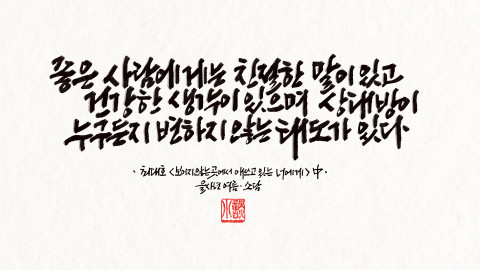 좋은 사람에게는 친절한 말이 있고
건강한 생각이 있으며 상대방이
누구든지 변하지 않는 태도가 있다.
· 최대호 <보이지 않는 곳에서 애쓰고 있는 너에게> 中 ·
을사년 여름 · 소담